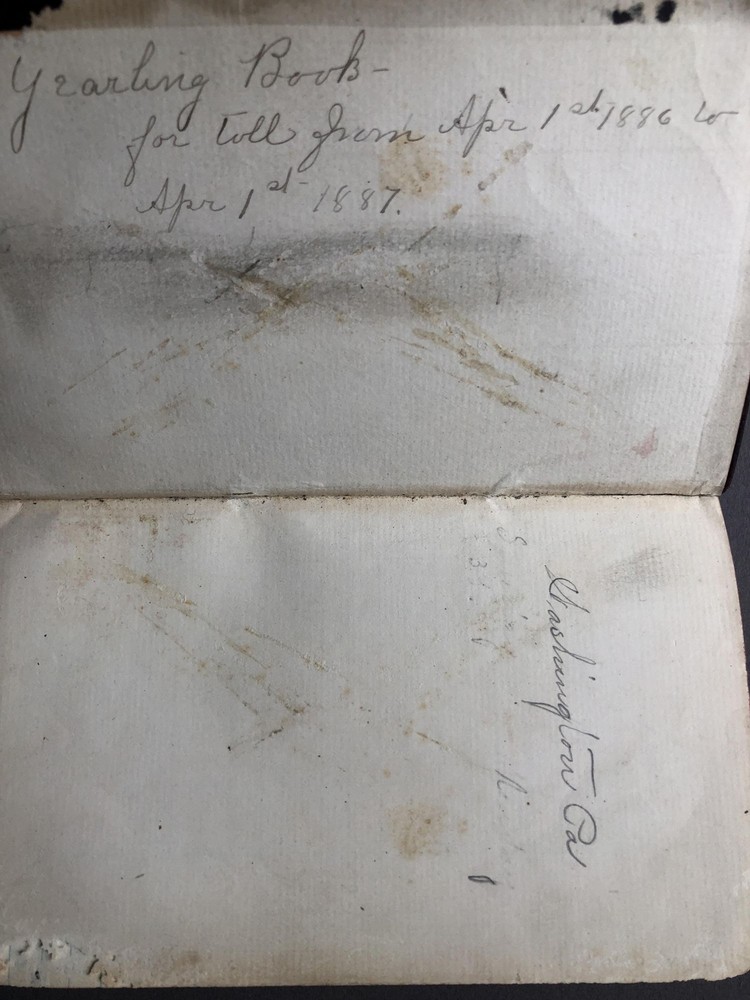 Yearling Book -
for toll from Apr 1st 1886 to
Apr 1st 1887.
Washington Pa